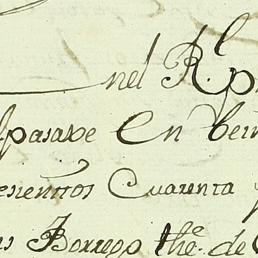 nel Rl p
pasaxe En bein
esienttos Cuarenta y
Borrego thte. de